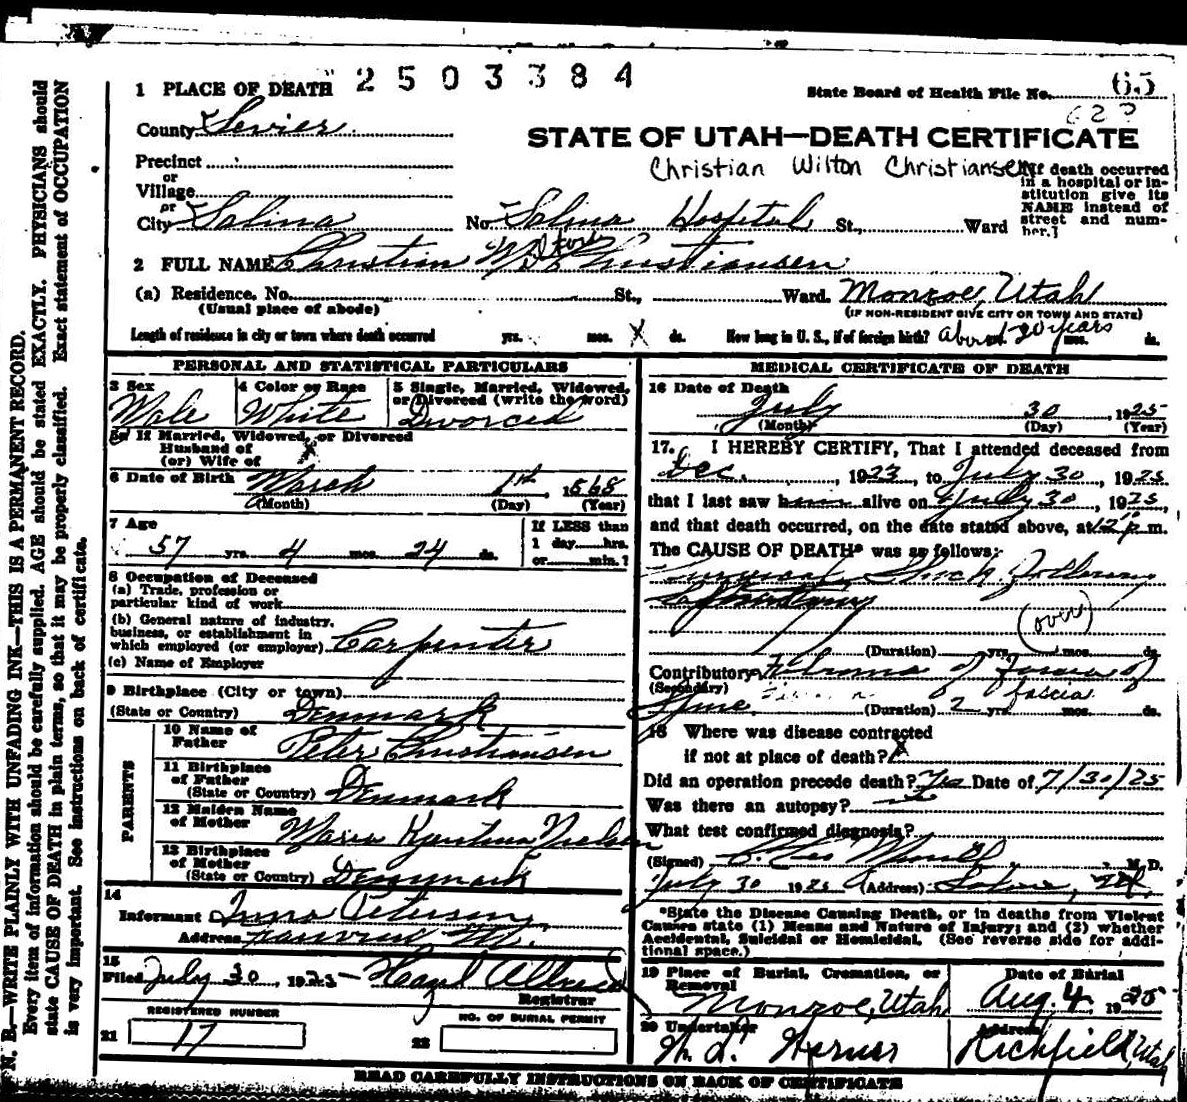 2503384
1 PLACE OF DEATH
State Board of Health File No. 65
County Sevier
STATE OF UTAH—DEATH CERTIFICATE
Precinct
or
Village
Christian Wilton Christiansen
[If death occurred
in a hospital or in-
stitution give its
NAME instead of
street and num-
ber.]
or
City Salina No. Salina Hospital St., Ward
2 FULL NAME Christian Christiansen
(a) Residence. No. St., Ward. Monroe, Utah
(Usual place of abode) (IF NON-RESIDENT GIVE CITY OR TOWN AND STATE)
Length of residence in city or town where death occurred yrs. mos. X ds. How long in U. S., if of foreign birth? about 20 years mos. ds.
PERSONAL AND STATISTICAL PARTICULARS
3 Sex
Male
4 Color or Race
White
5 Single, Married, Widowed,
or Divorced (write the word)
Divorced
5a If Married, Widowed, or Divorced
Husband of
(or) Wife of
6 Date of Birth March 1st, 1868
(Month) (Day) (Year)
7 Age
57 yrs. 4 mos. 24 ds.
If LESS than
1 day hrs.
or min.?
8 Occupation of Deceased
(a) Trade, profession or
particular kind of work
(b) General nature of industry,
business, or establishment in
which employed (or employer) Carpenter
(c) Name of Employer
9 Birthplace (City or town)
(State or Country) Denmark
PARENTS
10 Name of
Father Peter Christiansen
11 Birthplace
of Father
(State or Country) Denmark
12 Maiden Name
of Mother Maria Nielsen
13 Birthplace
of Mother
(State or Country) Denmark
14
Informant Petersen
Address
15
Filed July 30 1925 Hazel Allred
Registrar
REGISTERED NUMBER
21 17
NO. OF BURIAL PERMIT
22
MEDICAL CERTIFICATE OF DEATH
16 Date of Death
July 30, 1925
(Month) (Day) (Year)
17. I HEREBY CERTIFY, That I attended deceased from
Dec. , 1923, to July 30, 1925
that I last saw him alive on July 30, 1925,
and that death occurred, on the date stated above, at 12 p.m.
The CAUSE OF DEATH* was as follows:
Surgical Shock following
(over)
(Duration) yrs. mos. ds.
Contributory of
(Secondary) fascia
Spine (Duration) 2 yrs. mos. ds.
18 Where was disease contracted
if not at place of death? X
Did an operation precede death? Yes Date of 7/30/25
Was there an autopsy?
What test confirmed diagnosis?
(Signed) M. D.
July 30 1925 (Address) Salina, Ut.
*State the Disease Causing Death, or in deaths from Violent
Causes state (1) Means and Nature of Injury; and (2) whether
Accidental, Suicidal or Homicidal. (See reverse side for addi-
tional space.)
19 Place of Burial, Cremation, or
Removal
Monroe, Utah
Date of Burial
Aug. 4, 1925
20 Undertaker
Address
Richfield, Utah
READ CAREFULLY INSTRUCTIONS ON BACK OF CERTIFICATE
N. B.—WRITE PLAINLY WITH UNFADING INK—THIS IS A PERMANENT RECORD.
Every item of information should be carefully supplied. AGE should be stated EXACTLY. PHYSICIANS should
state CAUSE OF DEATH in plain terms, so that it may be properly classified. Exact statement of OCCUPATION
is very important. See instructions on back of certificate.